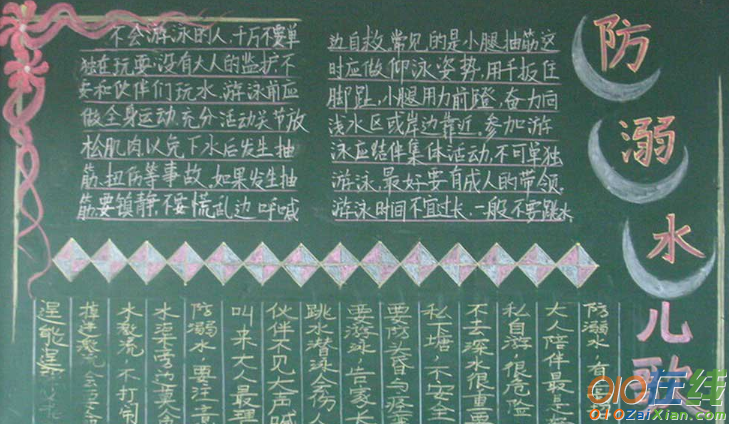 防溺水儿歌
不会游泳的人,千万不要单
独在玩耍.没有大人的监护不
要和伙伴们玩水.游泳前应
做全身运动.充分活动关节放
松肌肉.以免下水后发生抽
筋、扭伤等事故.如果发生抽
筋要镇静,不要慌乱边呼喊
边自救.常见的是小腿抽筋这
时应做仰泳姿势,用手扳住
脚趾,小腿用力前蹬,奋力向
浅水区或岸边靠近,参加游
泳应结伴集体活动,不可单独
游泳.最好要有成人的带领.
游泳时间不宜过长.一般不要跳水
防溺水,有
大人陪伴最是
私自游,很危险
不去深水很重要
私下塘,不安全
要防头昏与
要游泳,告家长
跳水潜泳会伤人
伙伴不见大声喊
叫来大人最
防溺水,要注意
水
水激流,不打闹
逞能逞
010在线
010ZaiXian.com